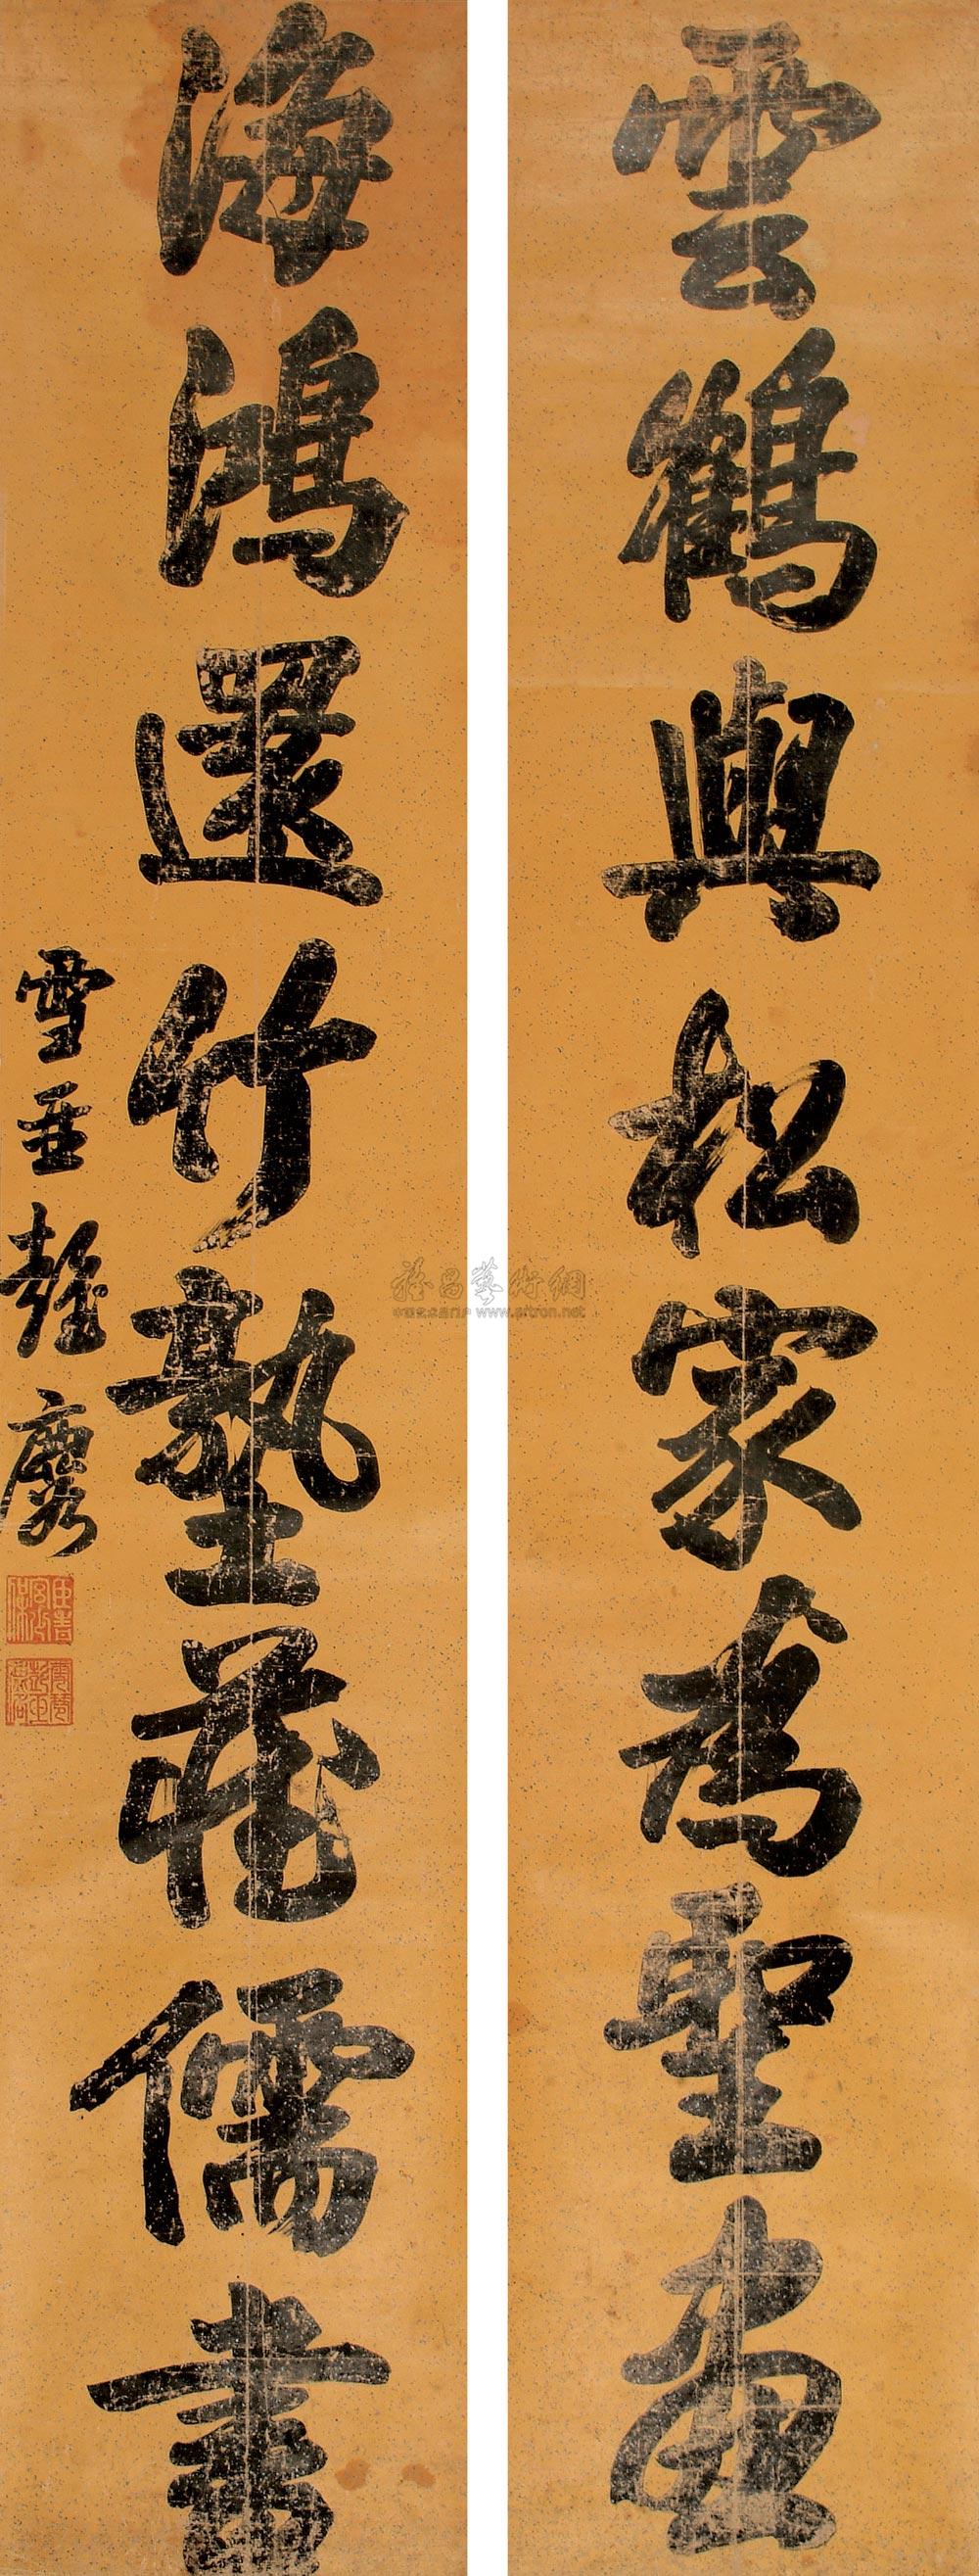 雲鶴與松家為聖
海鴻還竹塾藏儒書
雪琴彭玉麐
雅昌藝術網
www.artron.net